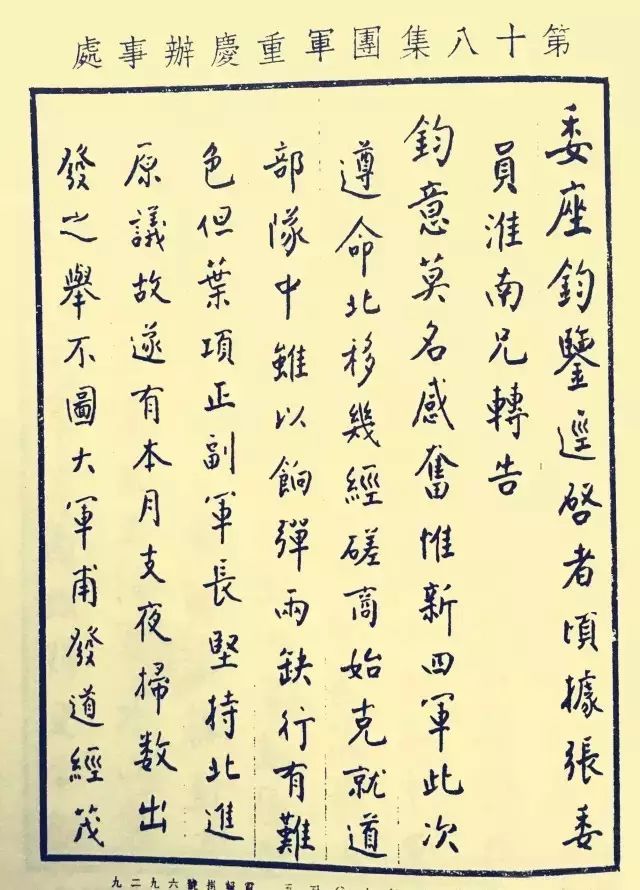 第十八集團軍重慶辦事處
委座鈞鑒逕啓者頃據張委
員淮南兄轉告
鈞意莫名感奮惟新四軍此次
遵命北移幾經磋商始克就道
部隊中雖以餉彈兩缺行有難
色但葉項正副軍長堅持北進
原議故遂有本月支夜掃数出
發之舉不圖大軍甫發道經茂
九二九六號掛